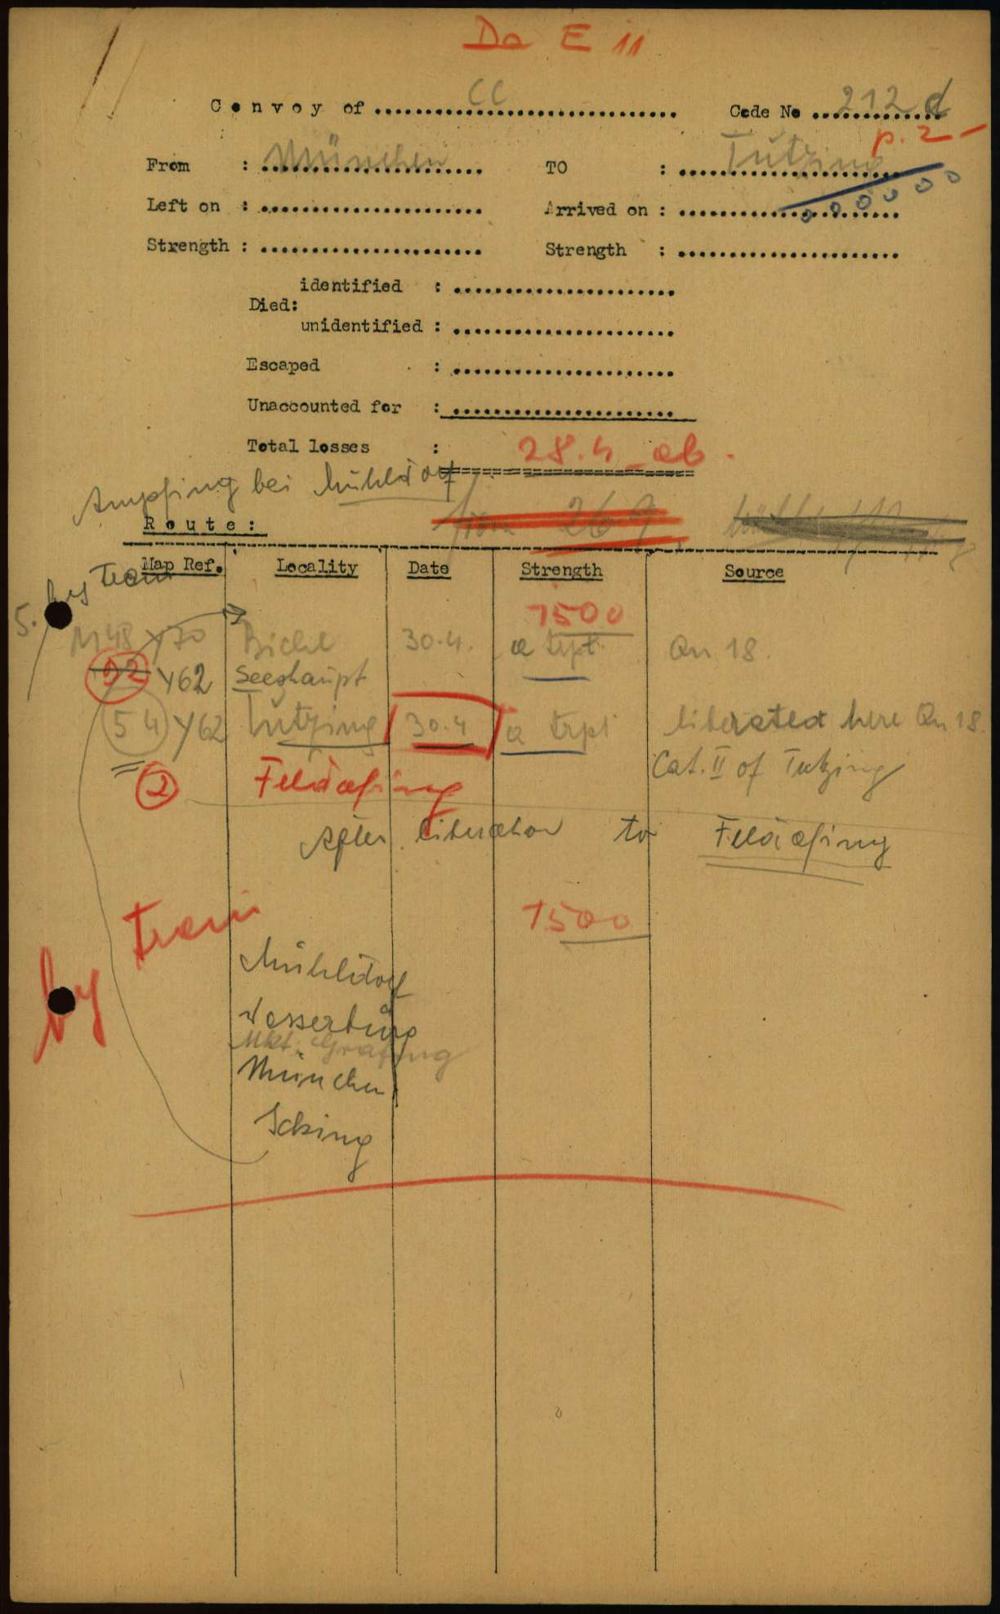 Da E 11
Convoy of CC Code No 212 d
p. 2 -
From : München TO : Tutzing
Left on : Arrived on :
Strength : Strength :
identified :
Died:
unidentified :
Escaped :
Unaccounted for :
Total losses :
28.4 ab.
Ampfing bei Mühldorf
from 269
Route:
Map Ref. Locality Date Strength Source
by Train
5.
1500
M48 Y70 Bichl 30.4. a trpt. Qu 18.
92 Y62 Seeshaupt
54 Y62 Tutzing 30.4 a trpt liberated here Qu 18.
Cat. II of Tutzing
2 Feldafing
After liberation to Feldafing
by Train
1500
Mühldorf
Wasserburg
Mkt. Grafing
München
Icking